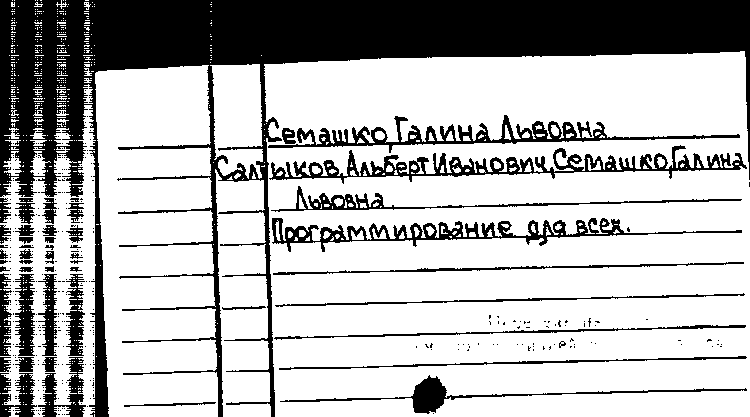 Семашко, Галина Львовна
Салтыков, Альберт Иванович, Семашко, Галина
Львовна.
Программирование для всех.